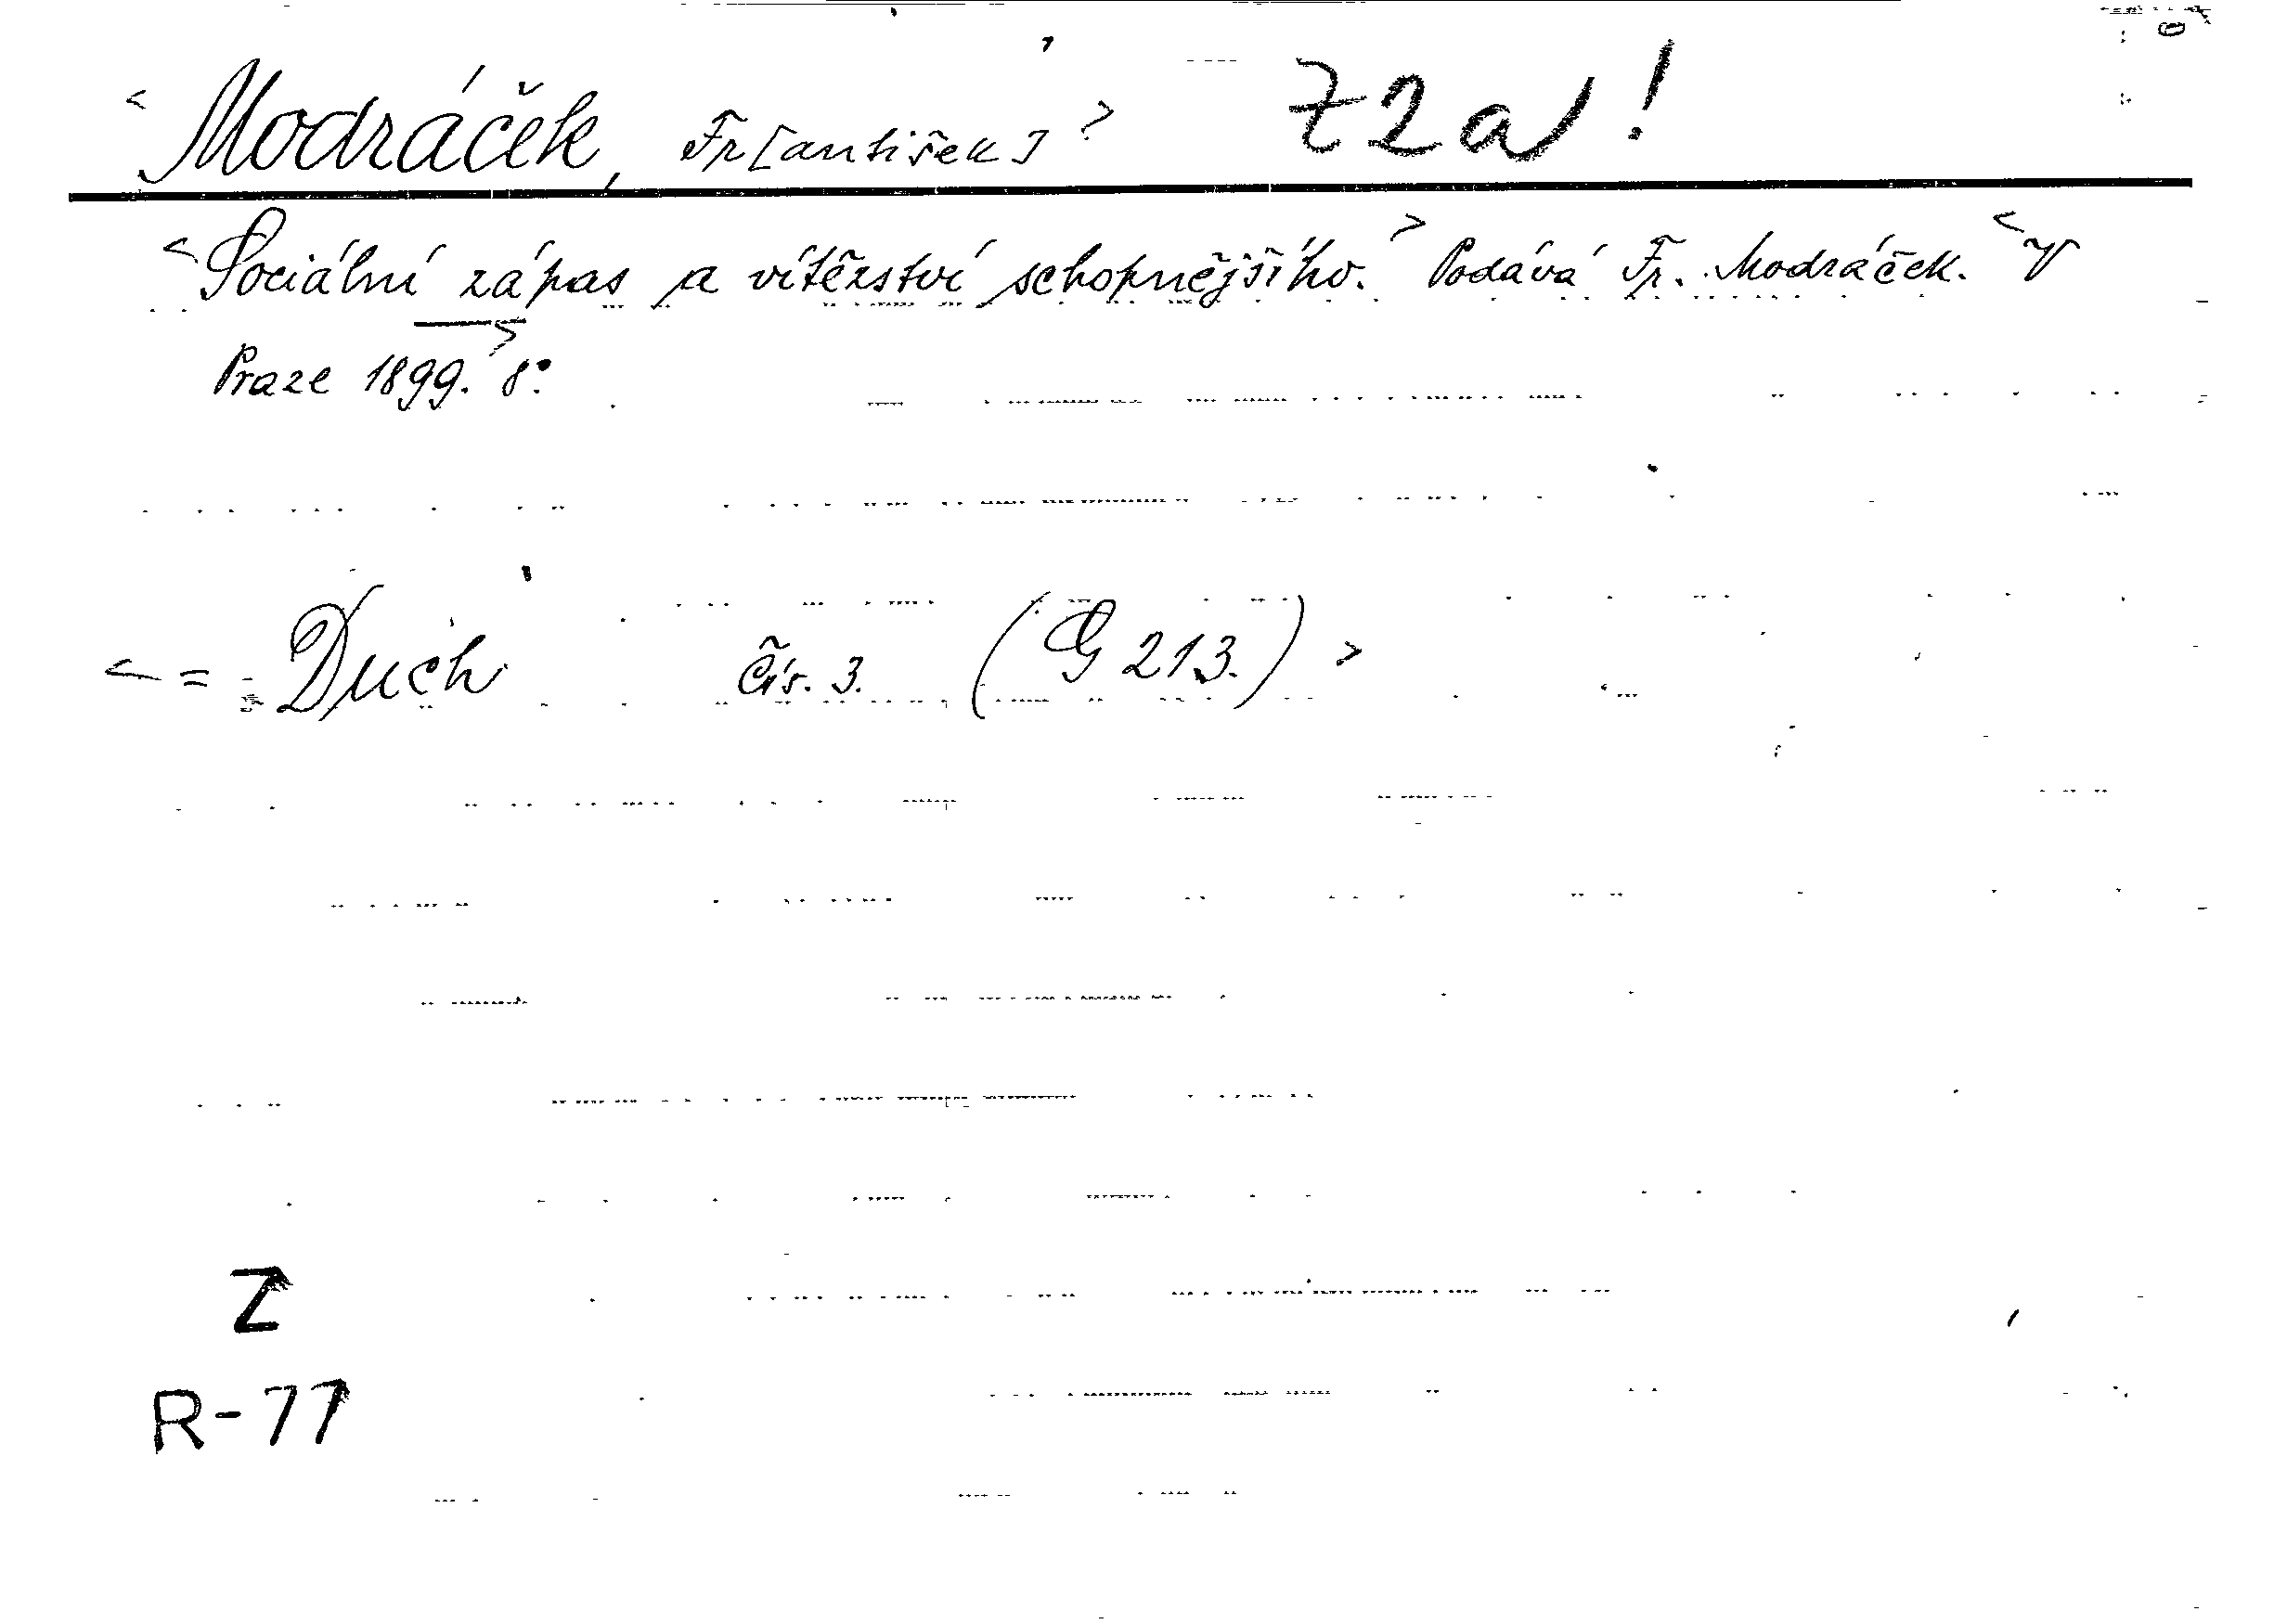 <Modráček, Fr[antišek]> Z2a!
<Sociální zápas a vítězství schopnějšího.> Podává Fr. Modráček. <V
Praze 1899.> 8°.
<= Duch čís. 3. (G 213.)>
Z
R-77